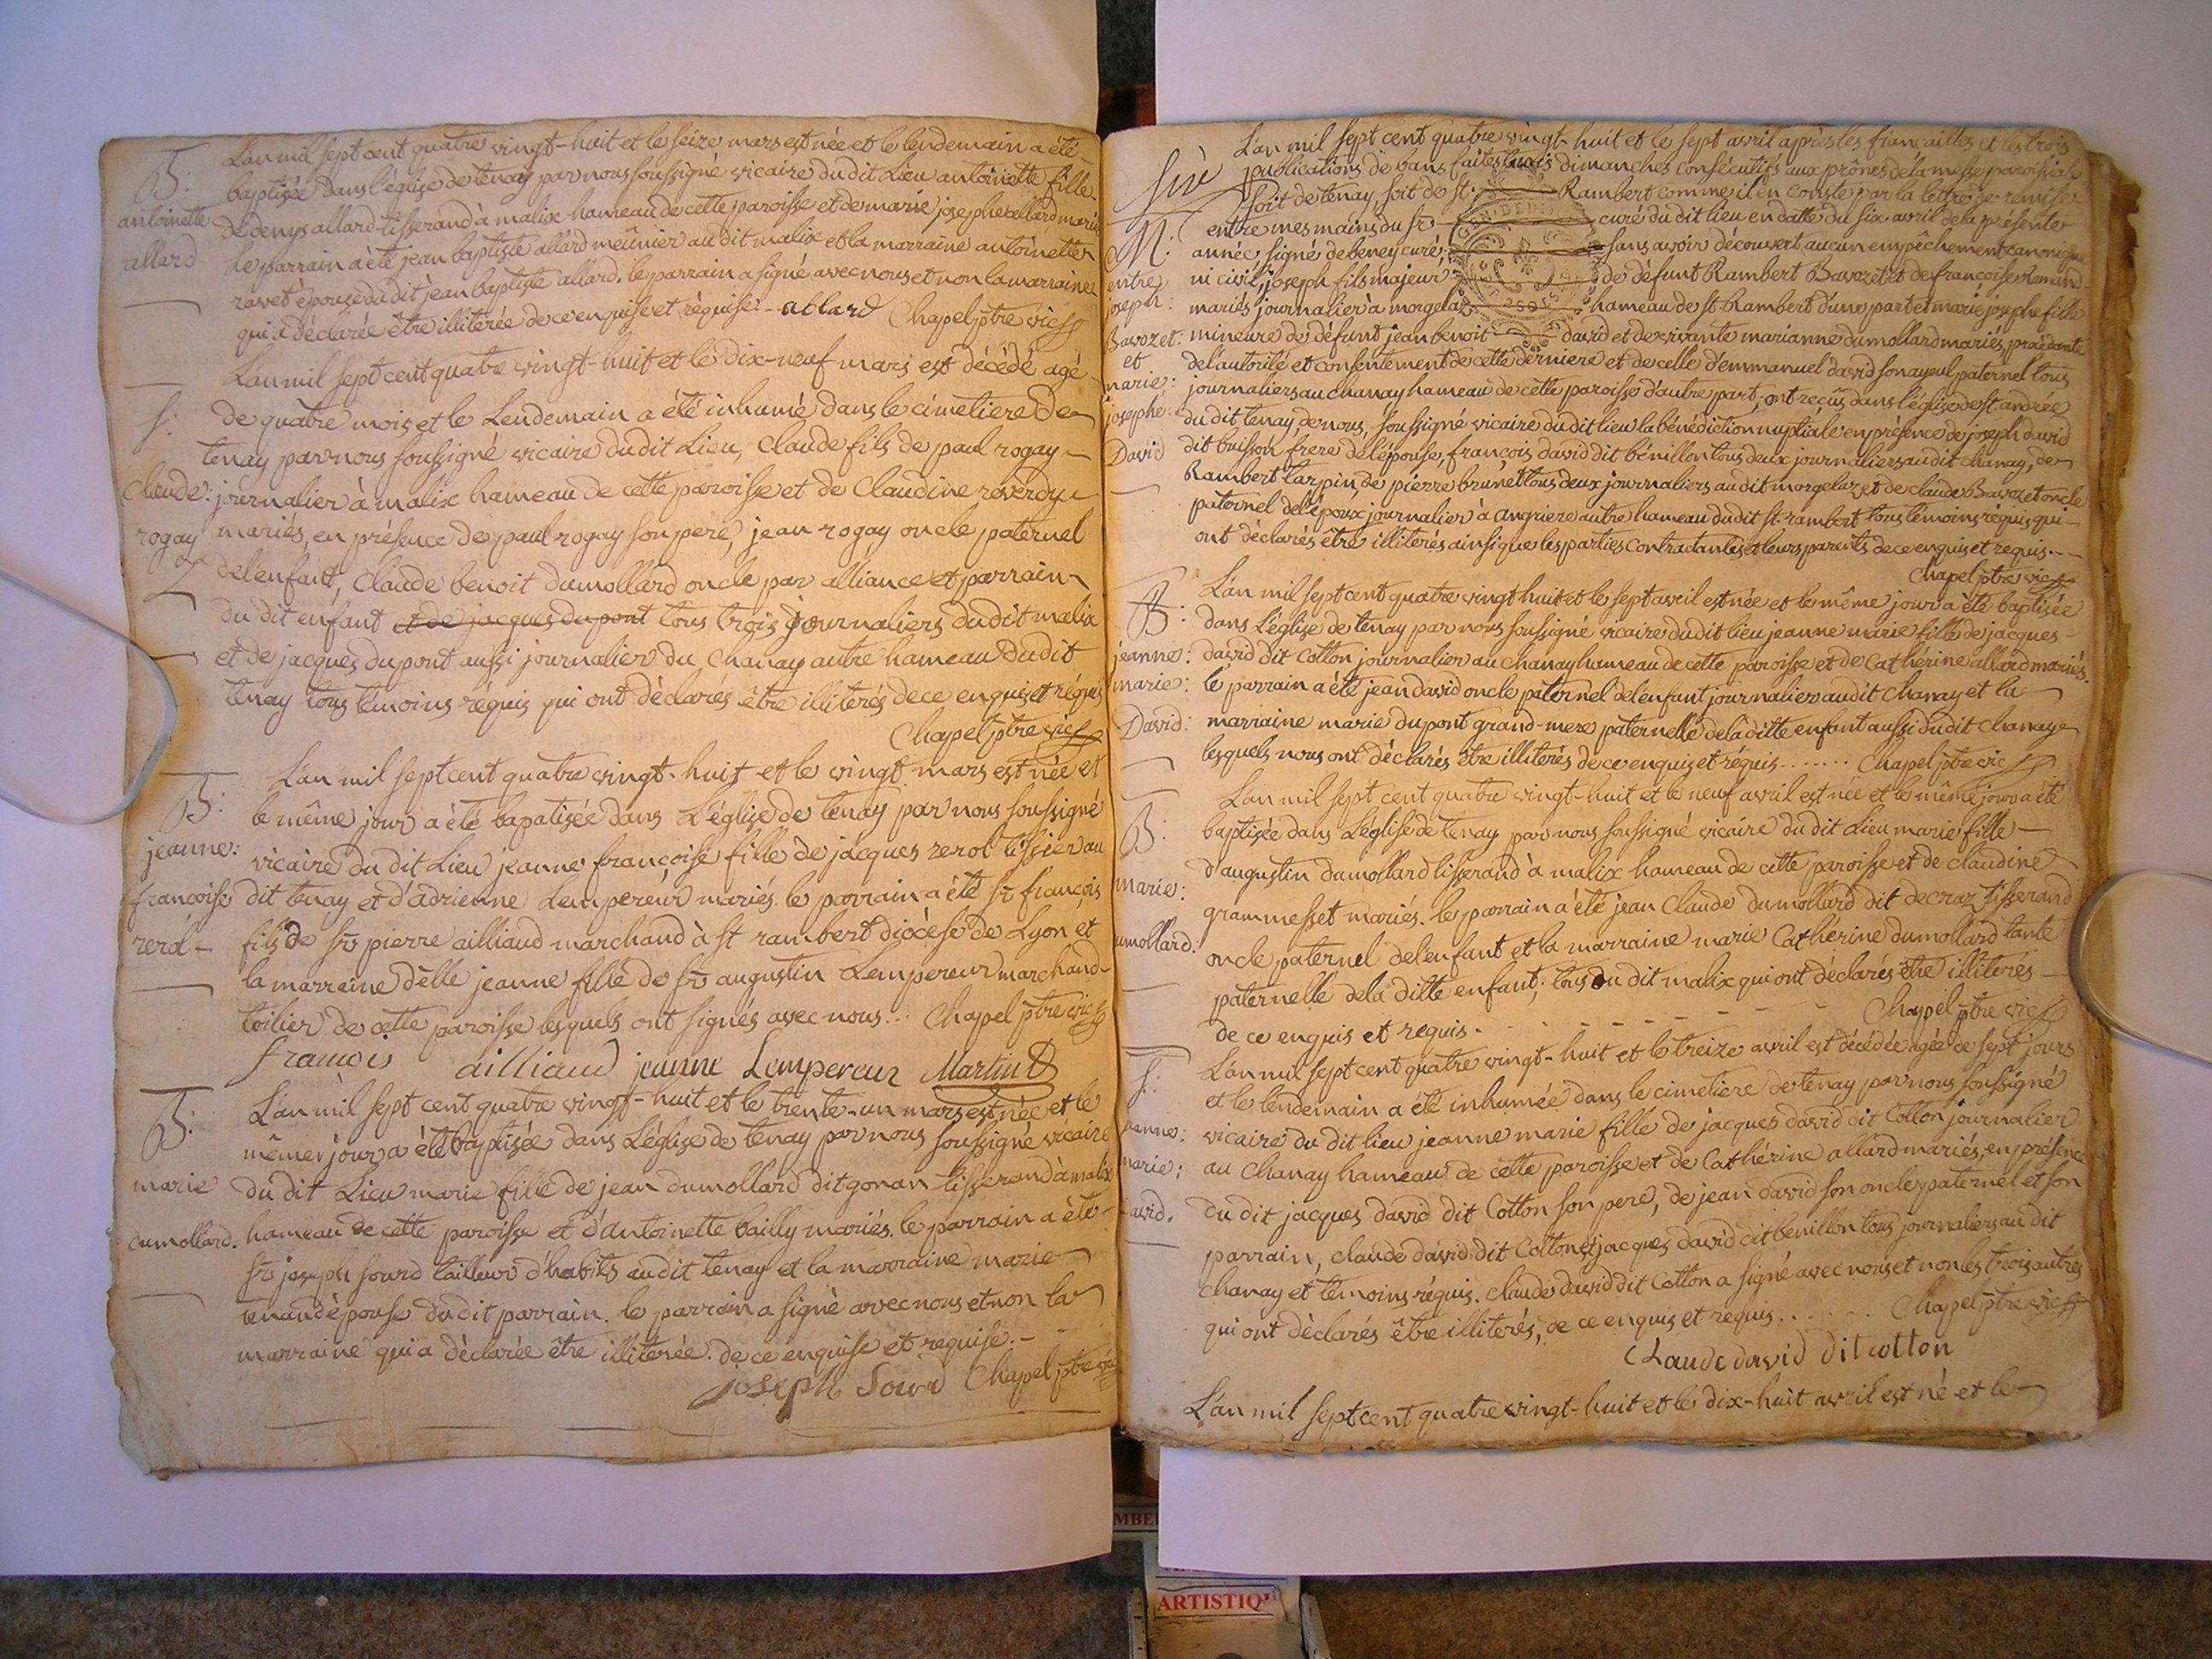 B:
antoinette
allard
L'an mil sept cent quatre vingt-huit et le seize mars est née et le lendemain a été
baptisée dans l'église de tenay par nous soussigné vicaire du dit Lieu antoinette fille
de denys allard tisserand à malix hameau de cette paroisse et de marie josephe allard mariés
le parrain a été jean baptiste allard meûnier au dit malix et la marraine antoinette
ravet épouse du dit jean baptiste allard. le parrain a signé avec nous et non la marraine
qui a déclarée être illiterée de ce enquise et réquise - allard Chapel ptre vic
S:
Claude:
rogay
L'an mil sept cent quatre vingt-huit et le dix-neuf mars est décédé agé
de quatre mois et le Lendemain a été inhumé dans le cimetiere de
tenay par nous soussigné vicaire dudit Lieu, Claude fils de paul rogay
journalier à malix hameau de cette paroisse et de Claudine reverdy
mariés, en présence de paul rogay son pere, jean rogay oncle paternel
del'enfant, Claude benoit dumollard oncle par alliance et parrain
du dit enfant et de jacques dupont tous trois journaliers dudit malix
et de jacques dupont aussi journalier du Chanay autre hameau dudit
tenay tous témoins réquis qui ont déclarés être illiterés de ce enquis et réquis
Chapel ptre vic
B:
jeanne:
francoise
rerol -
L'an mil sept cent quatre vingt-huit et le vingt mars est née et
le même jour a été bapatisée dans L'église de tenay par nous soussigné
vicaire du dit Lieu jeanne françoise fille de jacques rerol tissier au
dit tenay et d'adrienne Lempereur mariés. le parrain a été sr françois
fils de sr pierre ailliaud marchand à st rambert diocèse de Lyon et
la marraine d'elle jeanne fille de sr augustin Lempereur marchand-
toilier de cette paroisse lesquels ont signés avec nous... Chapel ptre vic
francois ailliaud jeanne Lempereur Martin
B:
marie
dumollard.
L'an mil sept cent quatre vingt-huit et le trente-un mars est née et le
même jour a été baptisée dans L'église de tenay par nous soussigné vicaire
du dit Lieu marie fille de jean dumollard dit gonan tisserand à malix
hameau de cette paroisse et d'antoinette bailly mariés. le parrain a été
sr joseph sourd tailleur d'habits au dit tenay et la marraine marie
tenand épouse du dit parrain. le parrain a signé avec nous et non la
marraine qui a déclarée être illiterée. de ce enquise et requise. -
joseph Sourd Chapel ptre vic
M:
entre
joseph:
Bavozet:
et
marie:
josephe:
David
L'an mil sept cent quatre vingt-huit et le sept avril après les fiancailles et les trois
publications de bans faites dimanches consécutifs aux prônes de la messe paroissiale
soit de tenay, soit de st. Rambert comme il en conste par la lettre de remise
entre mes mains du sr curé du dit lieu en datte du six avril de la présente
année, signé debeney curé; sans avoir découvert aucun empêchement canonique
ni civil, joseph fils majeur de défunt Rambert Bavozet et de francoise
mariés journalier à morgelaz hameau de st Rambert d'une part et marie josephe fille
mineure de défunt jean benoit david et de vivante marianne dumollard mariés, procédante
de l'autorité et consentement de cette derniere et de celle d'emmanuel david son ayeul paternel tous
journaliers au chanay hameau de cette paroisse d'autre part; ont reçus dans l'église de st andrée
du dit tenay de nous, soussigné vicaire du dit lieu la bénédiction nuptiale en présence de joseph david
dit buisson frere de l'épouse, francois david dit bénillon tous deux journaliers au dit chanay, de
Rambert tarpin, de pierre brunet tous deux journaliers au dit morgelaz et de claude Bavozet oncle
paternel de l'époux journalier à angriere autre hameau du dit st. rambert tous témoins réquis qui
ont déclarés être illiterés ainsi que les parties contractantes et leurs parents de ce enquis et requis.
Chapel ptre vic
B:
jeanne:
marie:
David:
L'an mil sept cent quatre vingt huit et le sept avril est née et le même jour a été baptisée
dans L'église de tenay par nous soussigné vicaire dudit lieu jeanne marie fille de jacques
david dit Cotton journalier au chanay hameau de cette paroisse et de Cathérine allard mariés.
le parrain a été jean david oncle paternel del'enfant journalier audit chanay et la
marraine marie dupont grand-mere paternelle de la ditte enfant aussi du dit chanay
lesquels nous ont déclarés être illiterés de ce enquis et réquis ....... Chapel ptre vic
B:
marie:
umollard:
L'an mil sept cent quatre vingt-huit et le neuf avril est née et le même jour a été
baptisée dans L'église de tenay par nous soussigné vicaire du dit Lieu marie fille
d'augustin dumollard tisserand à malix hameau de cette paroisse et de claudine
grammesset mariés. le parrain a été jean Claude dumollard dit decraz tisserand
oncle paternel del'enfant et la marraine marie Cathérine dumollard tante
paternelle de la ditte enfant; tous du dit malix qui ont déclarés être illiterés
de ce enquis et requis. Chapel ptre vic
S:
eanne:
marie:
avid.
L'an mil sept cent quatre vingt-huit et le treize avril est décédée agée de sept jours
et le lendemain a été inhumée dans le cimetiere de tenay par nous soussigné
vicaire du dit lieu jeanne marie fille de jacques david dit Cotton journalier
au Chanay hameau de cette paroisse et de Cathérine allard mariés, en présence
du dit jacques david dit Cotton son pere, de jean david son oncle paternel et son
parrain, claude david dit Cotton et jacques david dit bénillon tous journaliers au dit
chanay et témoins réquis. claude david dit Cotton a signé avec nous et non les trois autres
qui ont déclarés être illiterés, de ce enquis et requis...... Chapel ptre vic
Claude david dit cotton
L'an mil sept cent quatre vingt-huit et le dix-huit avril est né et le
ARTISTIQ